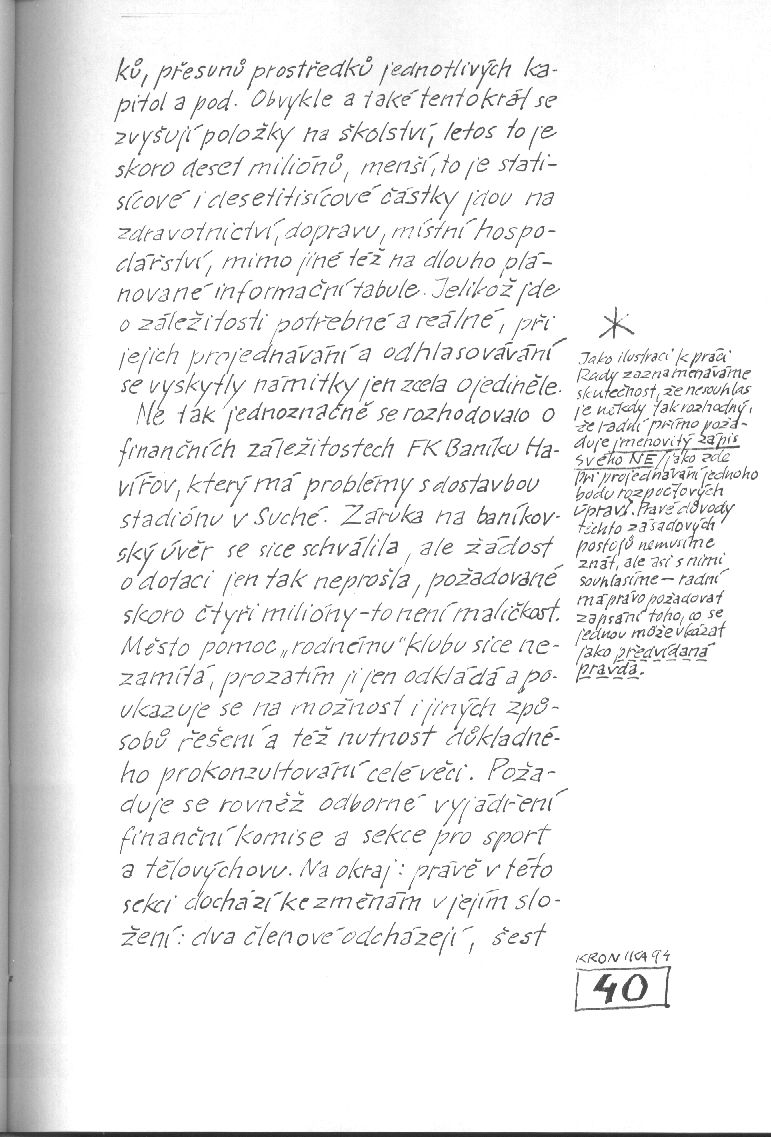 ků, přesunů prostředků jednotlivých ka-
pitol a pod. Obvykle a také tentokrát se
zvyšují položky na školství, letos to je
skoro deset miliónů, menší, to je stati-
sícové i desetitisícové částky jdou na
zdravotnictví, dopravu, místní hospo-
dářství, mimo jiné též na dlouho plá-
nované informační tabule. Jelikož jde
o záležitosti potřebné a reálné, při
jejich projednávání a odhlasovávání
se vyskytly námitky jen zcela ojediněle.
Ne tak jednoznačně se rozhodovalo o
finančních záležitostech FK Baníku Ha-
vířov, který má problémy s dostavbou
stadiónu v Suché. Záruka na baníkov-
ský úvěr se sice schválila, ale žádost
o dotaci jen tak neprošla, požadované
skoro čtyři milióny - to není maličkost.
Město pomoc „rodnému" klubu sice ne-
zamítá, prozatím ji jen odkládá a po-
ukazuje se na možnost i jiných způ-
sobů řešení a též nutnost důkladné-
ho prokonzultování celé věci. Poža-
duje se rovněž odborné vyjádření
finanční komise a sekce pro sport
a tělovýchovu. Na okraj: právě v této
sekci dochází ke změnám v jejím slo-
žení: dva členové odcházejí, šest
*
Jako ilustraci k práci
Rady zaznamenáváme
skutečnost, že nesouhlas
je někdy tak rozhodný,
že radní přímo poža-
duje jmenovitý zápis
svého NE, jako zde
při projednávání jednoho
bodu rozpočtových
úprav. Pravé důvody
těchto zásadových
postojů nemusíme
znát, ale asi s nimi
souhlasíme - radní
má právo požadovat
zapsání toho, co se
jednou může ukázat
jako předvídaná
pravda.
KRONIKA 94
40